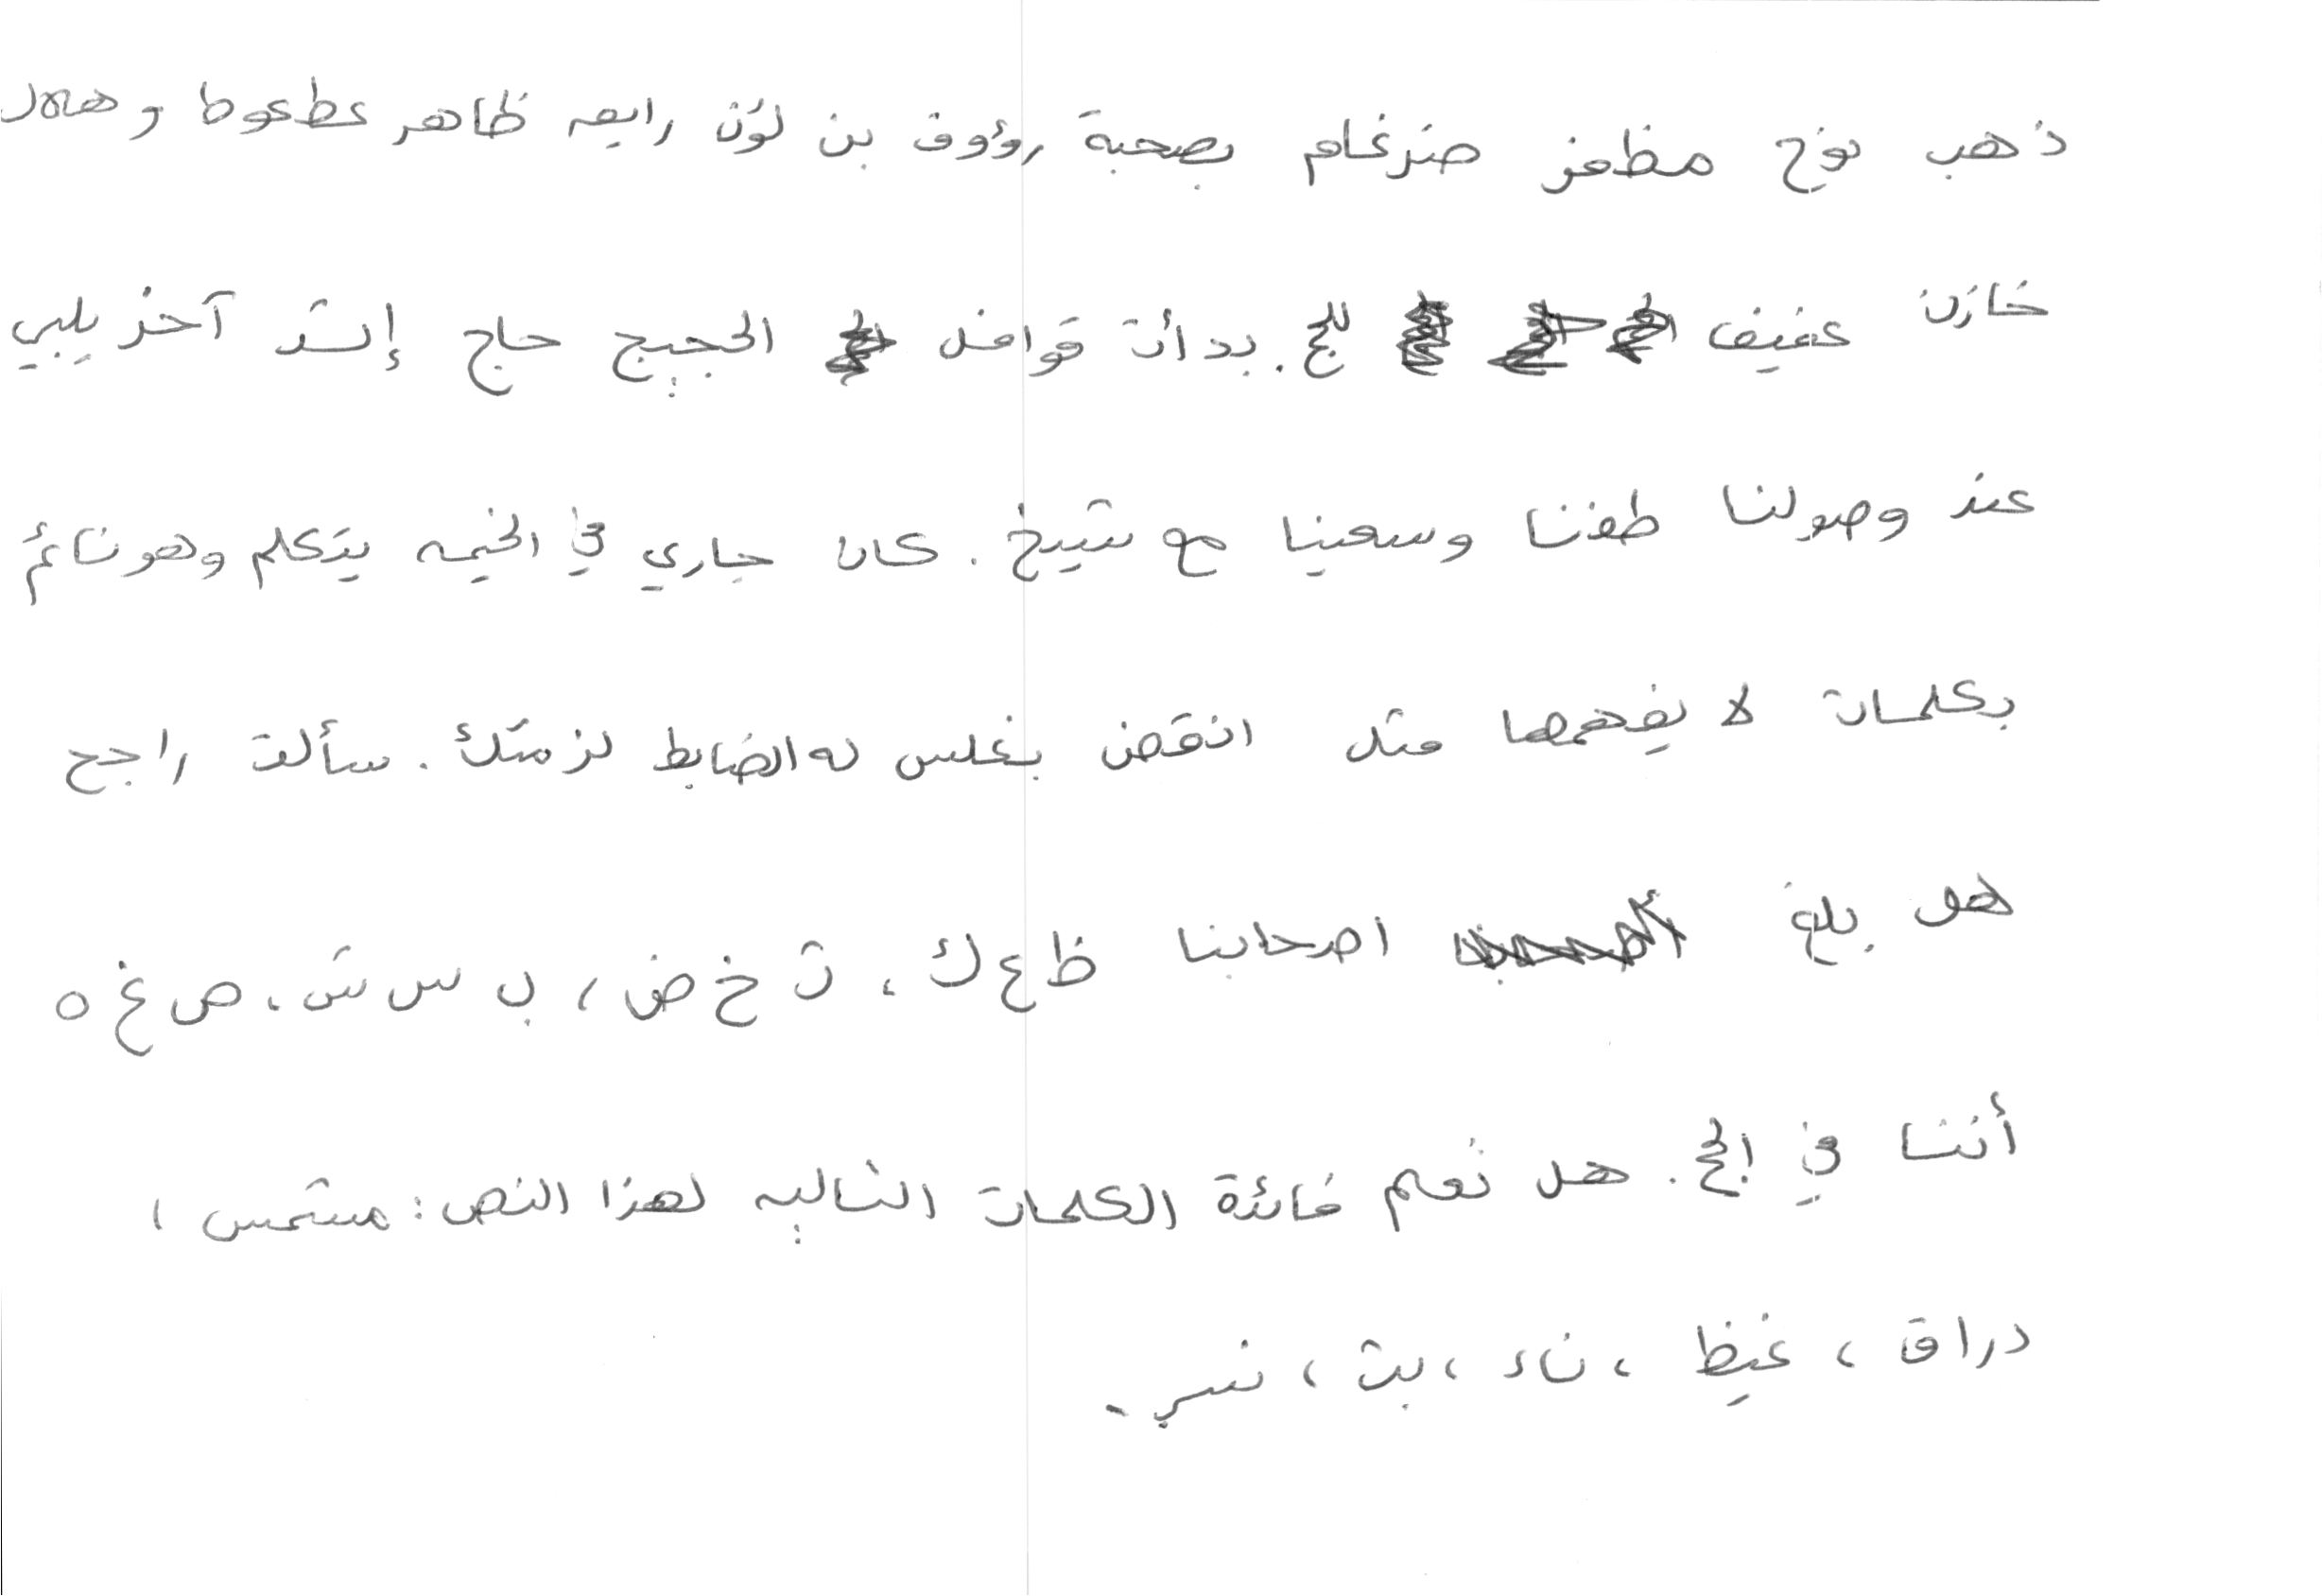 ذهب نوح مظعز ضرغام بصحبة رؤوف بن لؤن رايعه ظاهر عطعوط و هلال
خازن عفيف للحج. بدأت قوافل الحجيج حاج إثر آخر يلبي
عند وصولنا طفنا وسعينا مع شيخ. كان جاري في الخيمه يتكلم وهو نائم
بكلمات لا يفهمها مثل انقض بغلس له الضابط لزمتك. سألت راجح
هو بلغ اصحابنا ظ ع ك، ث خ ض، ب س ش، ص غ ه
أننا في الحج. هل نعم فائدة الكلمات التاليه لهذا النص: مشمس،
دراق، غيظ، ناء، بث، نسي.